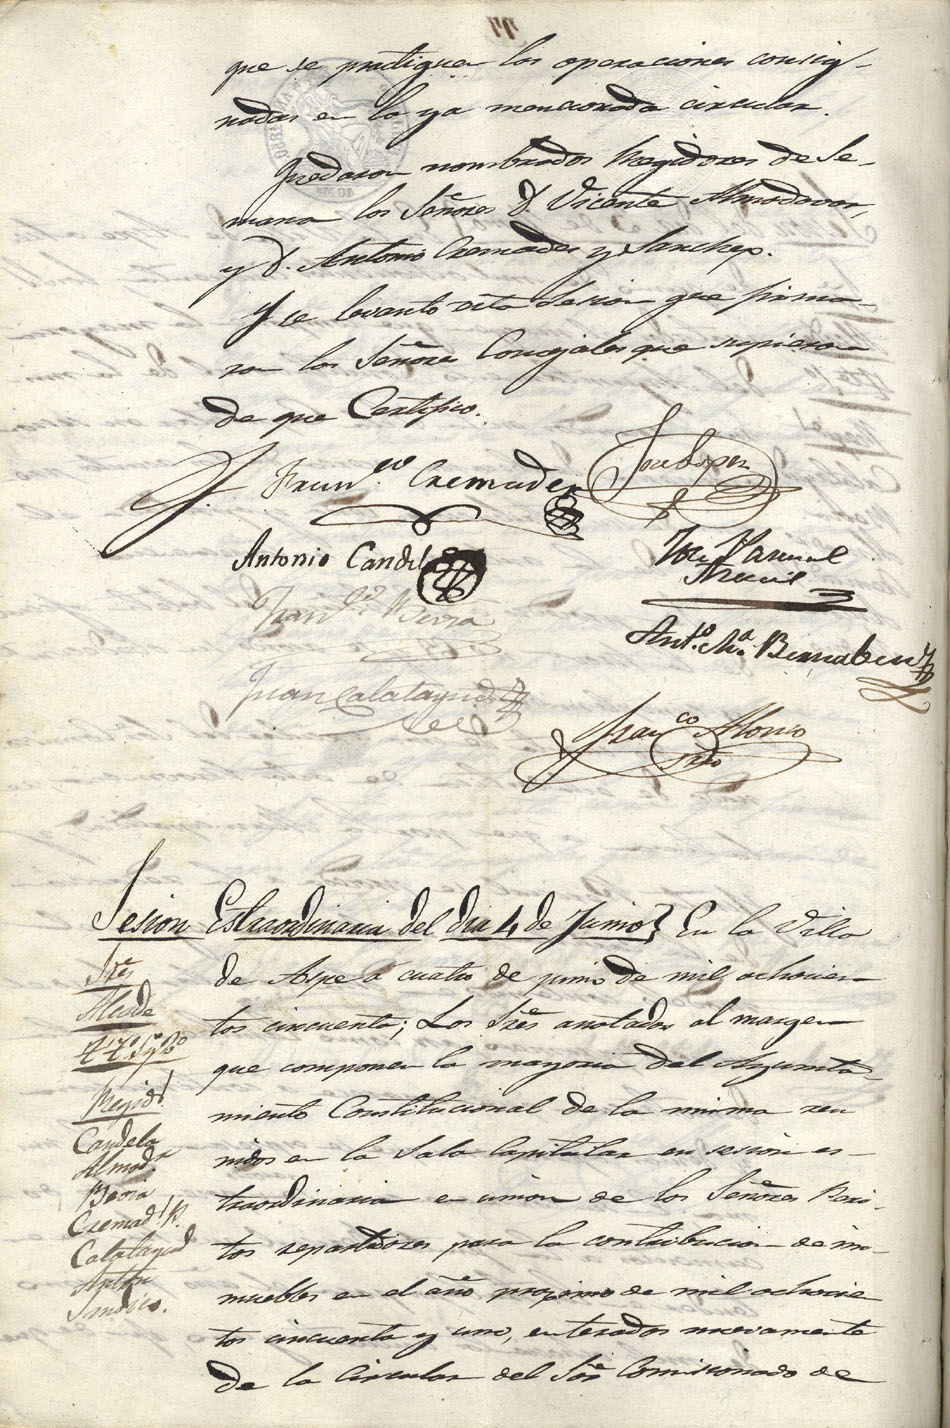 que se practiquen las operaciones consig-
nadas en la ya mencionada circular.
Quedaron nombrados Regidores de Se-
mana los Señores D. Vicente Almodovar,
y D. Antonio Cremades y Sanchez.
Y se levantó esta sesion que firma-
ron los Señores Concejales que supieron
de que Certifico.
Fran.co Cremades
Jose Lopez
Antonio Candela
Jose Pascual
Fran.co Beria
Ant.o M.a Bernabeu
Juan Calatayud
Fran.co Alonso
Srio
Sesion Estraordinaria del dia 4 de Junio} En la Villa
de Aspe a cuatro de junio de mil ochocien-
tos cincuenta; Los Sres anotados al margen
que componen la mayoria del Ayunta-
miento Constitucional de la misma reu
nidos en la Sala Capitular en sesion es-
traordinaria en union de los Señores Peri-
tos repartidores para la contribucion de in-
muebles en el año proximo de mil ochocien
tos cincuenta y uno, enterados nuevamente
de la Circular del Sor Comisionado de
Sres
Alcade
Regid.s
Candela
Almod.r
Beria
Cremad.s
Calatayud
Antón
Sindico.